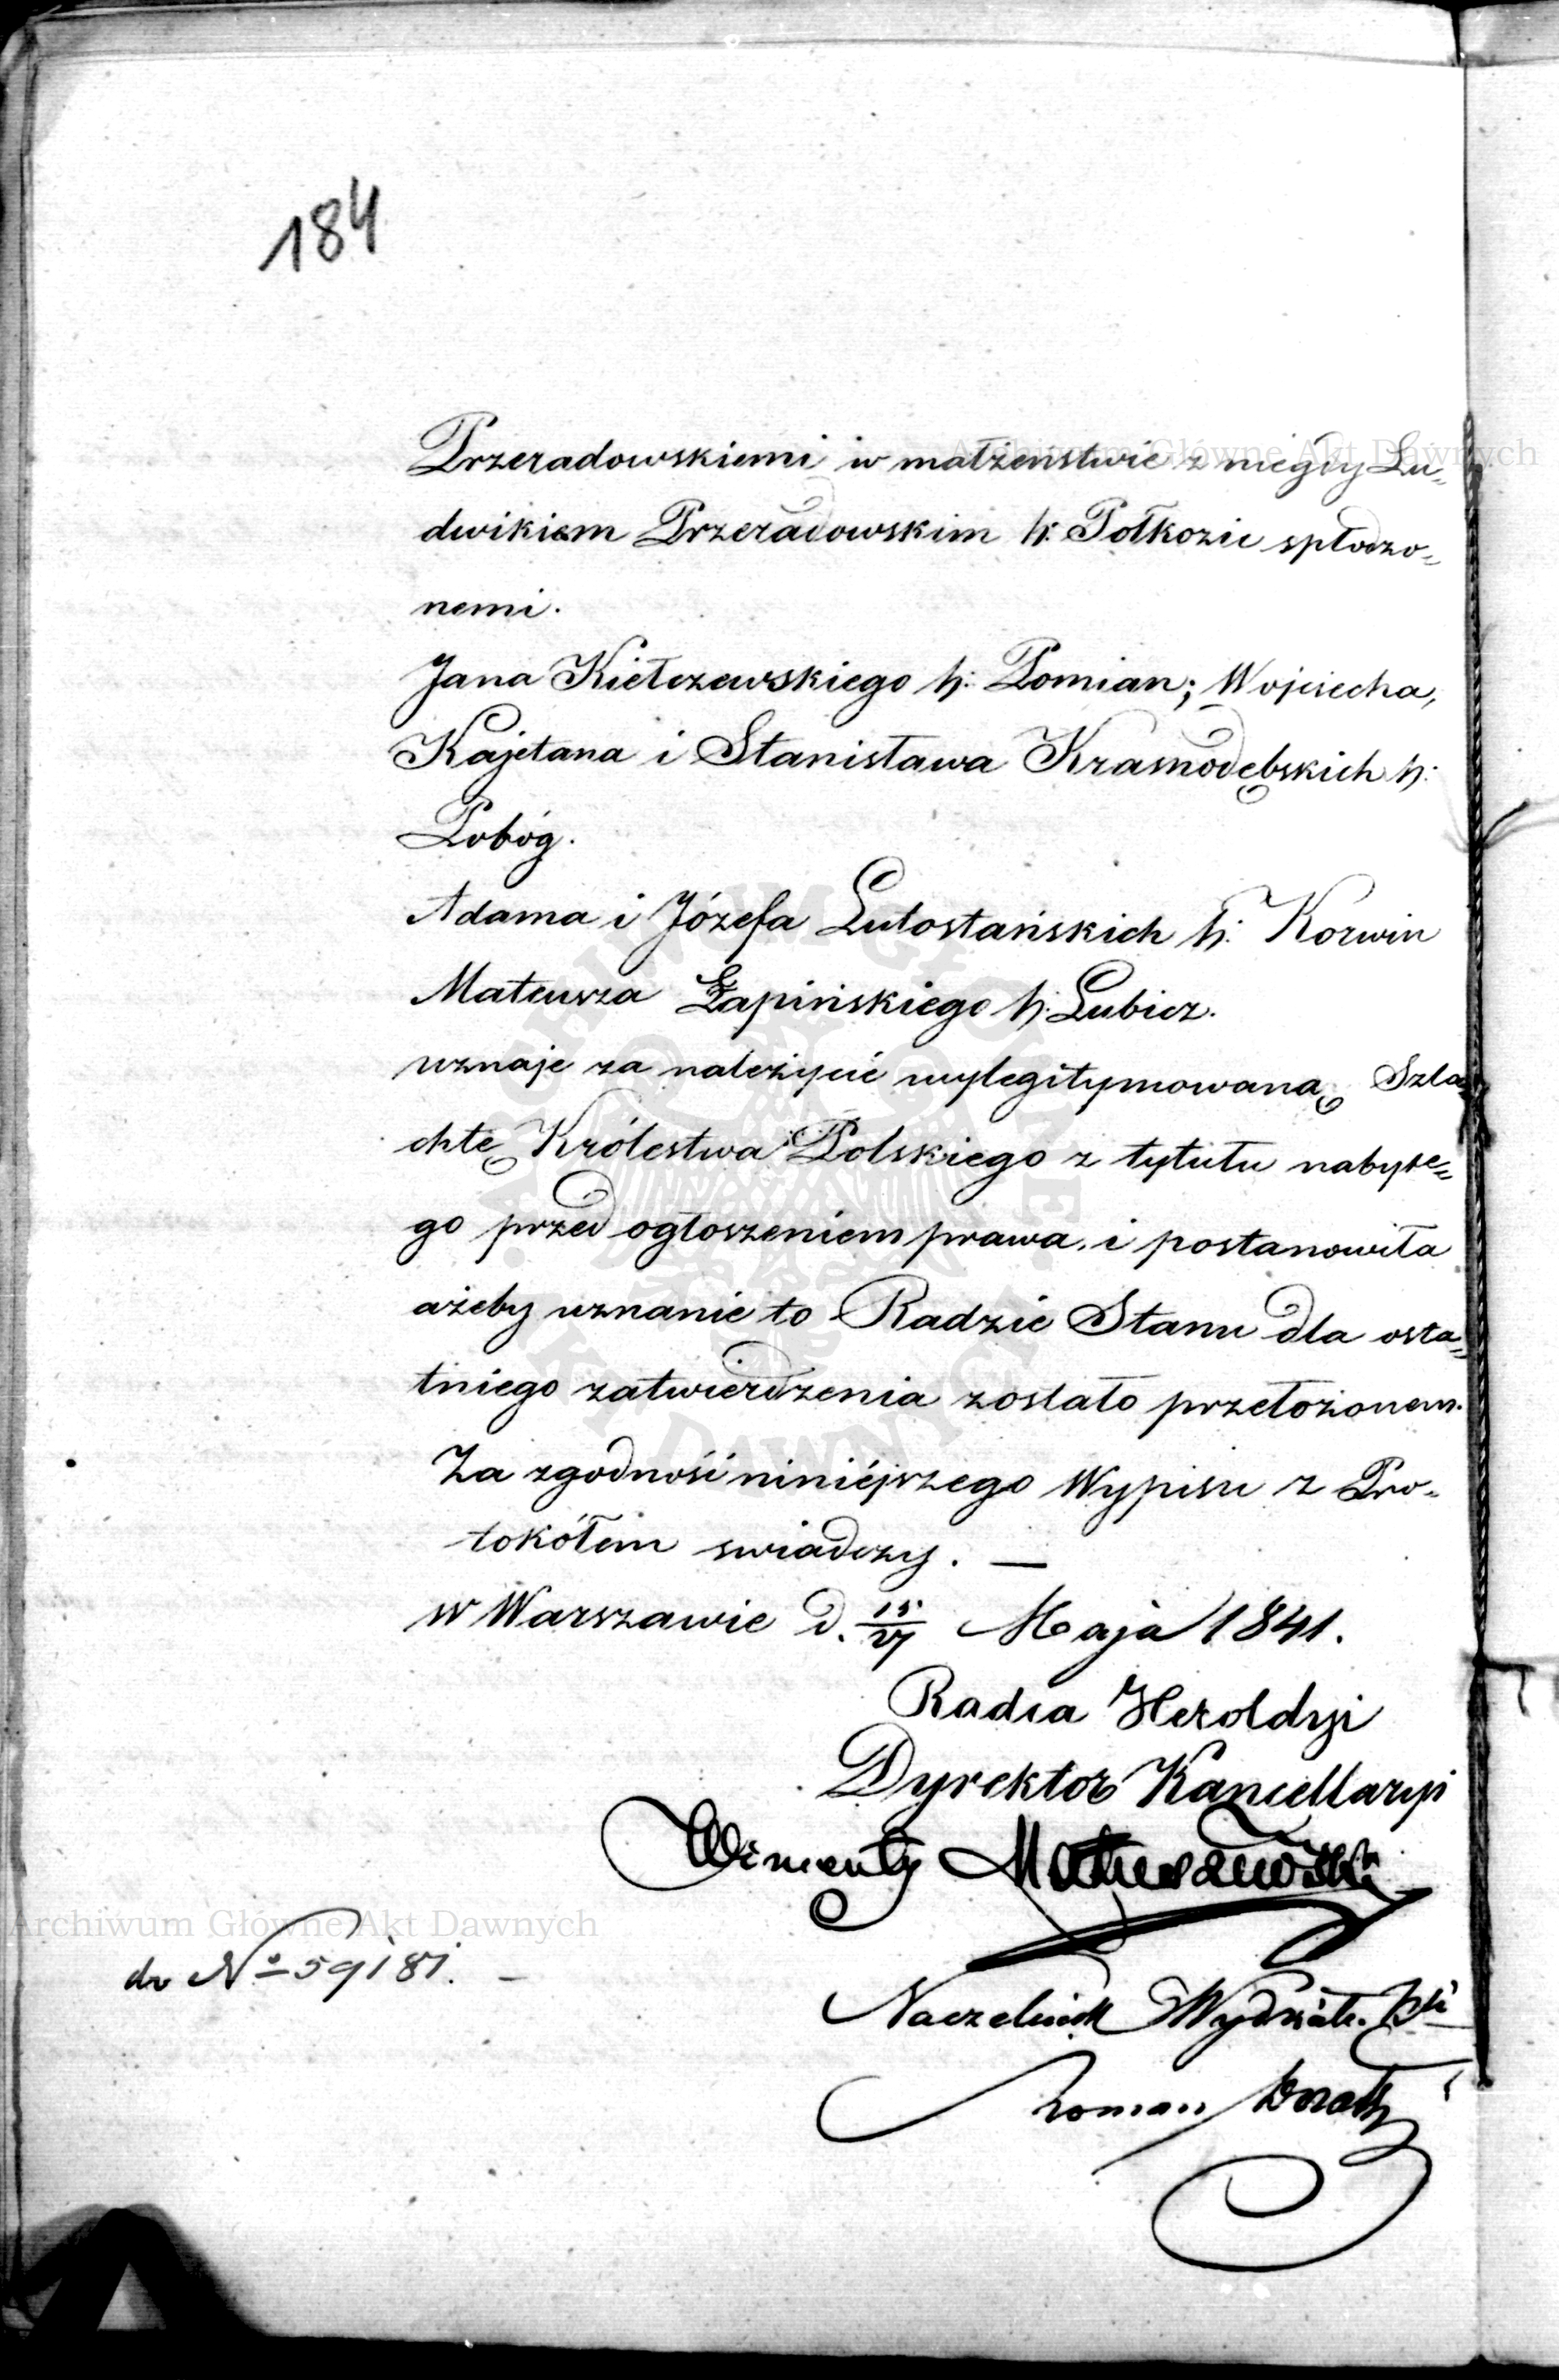 184
Przeradowskiemi w małżeństwie z niegdy Lu-
dwikiem Przeradowskim h: Połkozic spłodzo-
nemi.
Jana Kiełczewskiego h: Pomian; Wojciecha,
Kajetana i Stanisława Krasnodębskich h:
Pobóg.
Adama i Józefa Lutostańskich h: Korwin
Mateusza Łapińskiego h: Lubicz.
uznaje za należycie wylegitymowaną Szla-
chtę Królestwa Polskiego z tytułu nabyte-
go przed ogłoszeniem prawa, i postanowiła
ażeby uznanie to Radzie Stanu dla osta-
tniego zatwierdzenia zostało przełożonem.
Za zgodność niniéjszego Wypisu z Pro-
tokółem swiadczy. —
w Warszawie d. 15/27 Maja 1841.
Radca Heroldyi
Dyrektor Kancellaryi
Wincenty Matuszewski
do No 59181. —
Naczelnik Wydziału
Roman
Archiwum Główne Akt Dawnych
Archiwum Główne Akt Dawnych
ARCHIWUM GŁÓWNE AKT DAWNYCH